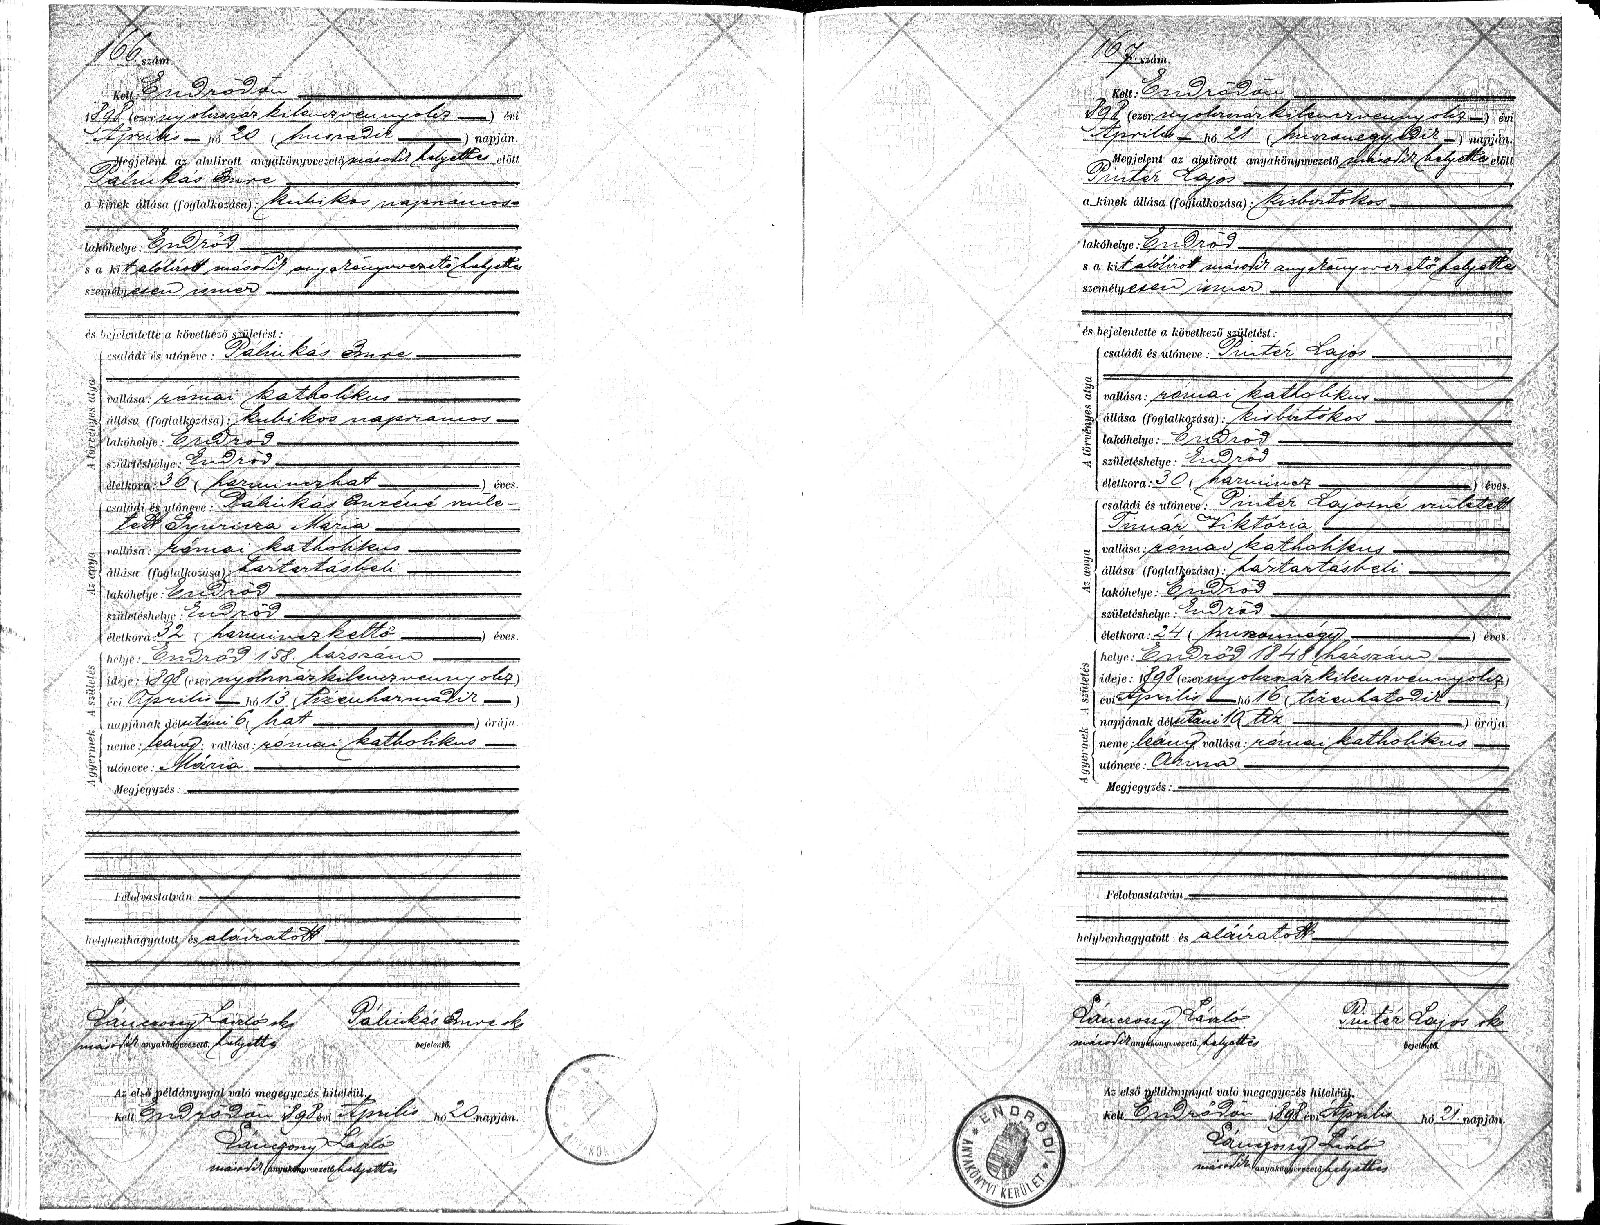 166 szám.
Kelt: Endrődön
1898 (ezer nyolczszázkilenczvennyolcz) évi
Április hó 20 (huszadik) napján.
Megjelent az alulirott anyakönyvvezető második helyettes előtt
Palinkás Imre
a kinek állása (foglalkozása): kubikos napszámos
lakóhelye: Endrőd
s a kit alólirott második anyakönyvvezető helyettes
személyesen ismer
és bejelentette a következő születést:
A törvényes atya
családi és utóneve: Palinkás Imre
vallása: római katholikus
állása (foglalkozása): kubikos napszámos
lakóhelye: Endrőd
születéshelye: Endrőd
életkora: 36 (harminczhat) éves.
Az anya
családi és utóneve: Palinkás Imréné szüle-
tett Gyuricza Mária
vallása: római katholikus
állása (foglalkozása): háztartásbeli
lakóhelye: Endrőd
születéshelye: Endrőd
életkora: 32 (harminczkettő) éves.
A gyermek A születés
helye: Endrőd 158 házszám
ideje: 1898 (ezer nyolczszázkilenczvennyolcz)
évi Április hó 13 (tizenharmadik)
napjának délutáni 6 (hat) órája.
neme: leány; vallása: római katholikus
utóneve: Mária
Megjegyzés:
Felolvastatván
helybenhagyatott és aláíratott
Lánczony László sk Pálinkás Imre sk
második anyakönyvvezető. helyettes bejelentő.
Az első példánynyal való megegyezés hiteléül.
Kelt Endrődön 1898 évi Április hó 20 napján.
Lánczony László
második anyakönyvvezető helyettes
167 szám.
Kelt: Endrődön
1898 (ezer nyolczszázkilenczvennyolcz) évi
Április hó 21 (huszonegyedik) napján.
Megjelent az alulirott anyakönyvvezető második helyettes előtt
Pintér Lajos
a kinek állása (foglalkozása): kisbirtokos
lakóhelye: Endrőd
s a kit alólirott második anyakönyvvezető helyettes
személyesen ismer
és bejelentette a következő születést:
A törvényes atya
családi és utóneve: Pintér Lajos
vallása: római katholikus
állása (foglalkozása): kisbirtokos
lakóhelye: Endrőd
születéshelye: Endrőd
életkora: 30 (harmincz) éves.
Az anya
családi és utóneve: Pintér Lajosné született
Timár Viktória
vallása: római katholikus
állása (foglalkozása): háztartásbeli
lakóhelye: Endrőd
születéshelye: Endrőd
életkora: 24 (huszonnégy) éves.
A gyermek A születés
helye: Endrőd 1848 házszám
ideje: 1898 (ezer nyolczszázkilenczvennyolcz)
évi Április hó 16 (tizenhatodik)
napjának délutáni 10 (tíz) órája.
neme: leány vallása: római katholikus
utóneve: Anna
Megjegyzés:
Felolvastatván
helybenhagyatott és aláíratott
Lánczony László Pintér Lajos sk
második anyakönyvvezető. helyettes bejelentő.
Az első példánynyal való megegyezés hiteléül.
Kelt Endrődön 1898 évi Április hó 21 napján.
Lánczony László
második anyakönyvvezető helyettes
ENDRŐDI
ANYAKÖNYVI KERÜLET